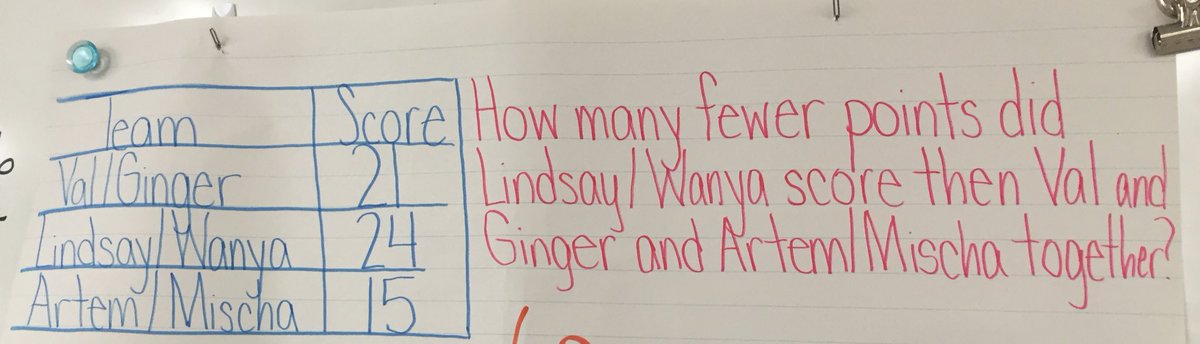 Team Score
Val/Ginger 21
Lindsay/Wanya 24
Artem/Mischa 15
How many fewer points did
Lindsay/Wanya score then Val and
Ginger and Artem/Mischa together?